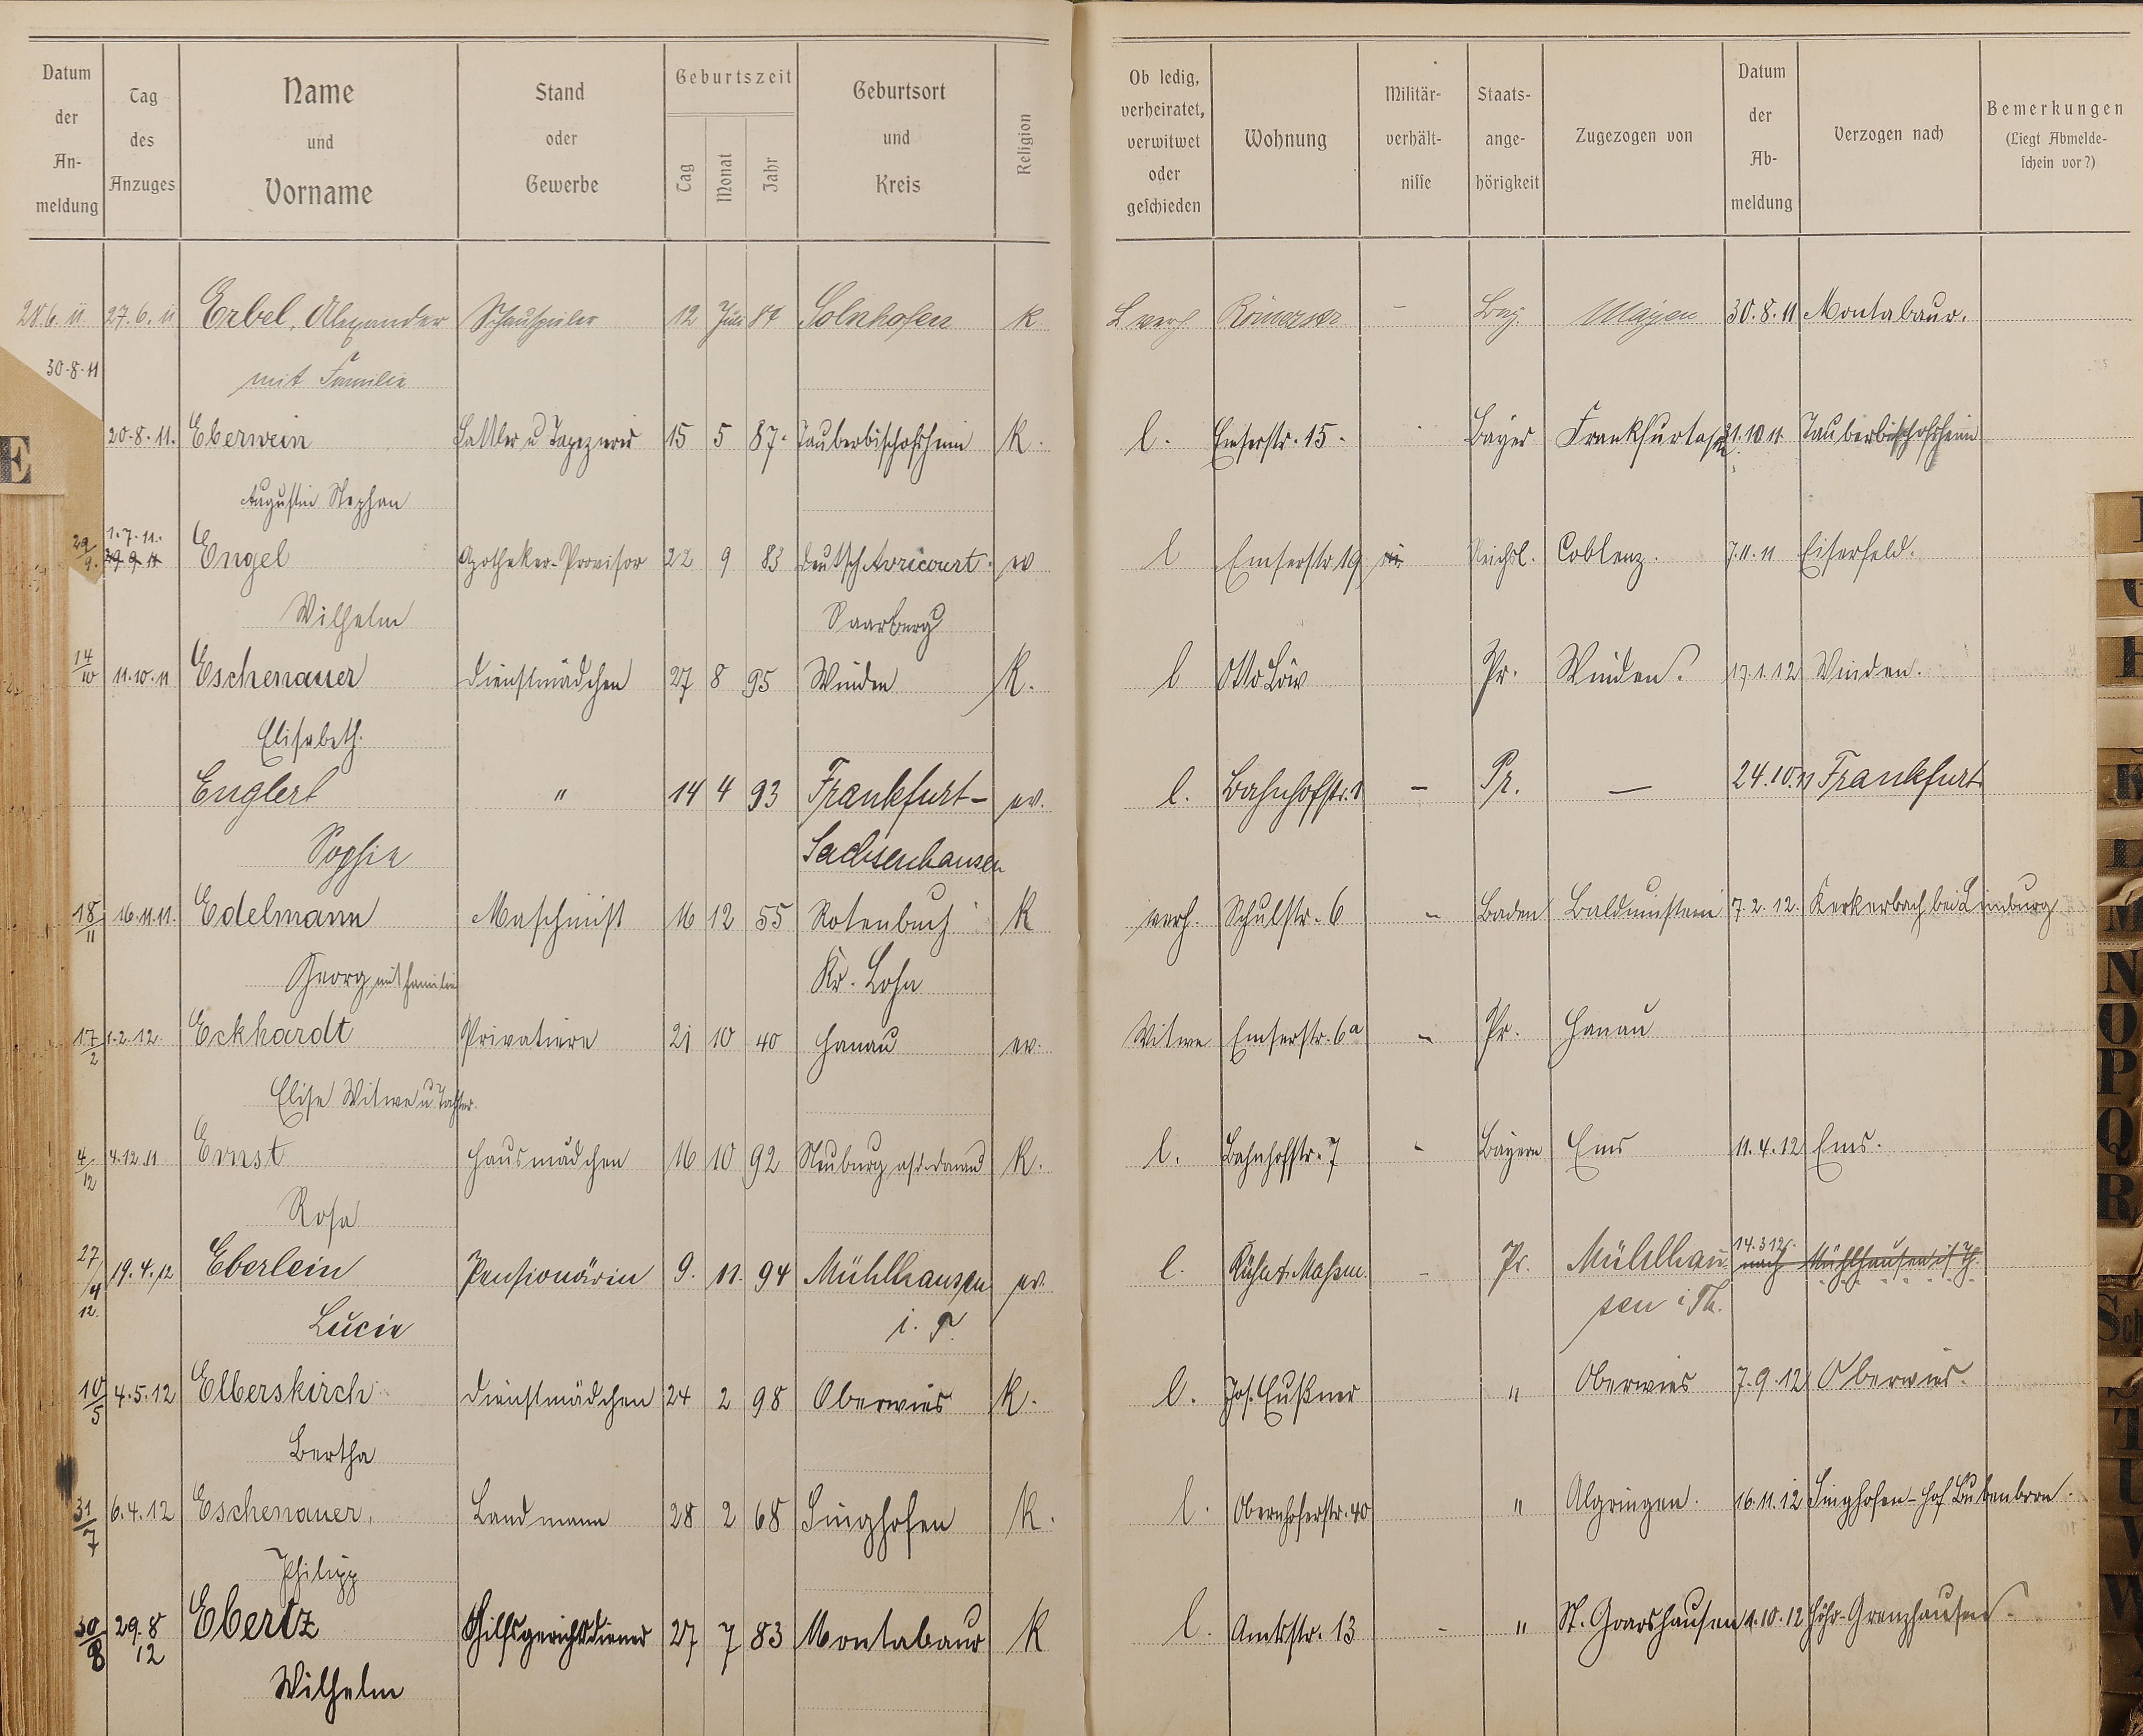 Datum der Anmeldung | Tag des Anzuges | Name und Vorname | Stand oder Gewerbe | Geburtszeit Tag Monat Jahr | Geburtsort und Kreis | Religion | Ob ledig, verheiratet, verwitwet oder geschieden | Wohnung | Militärverhältnisse | Staatsangehörigkeit | Zugezogen von | Datum der Abmeldung | Verzogen nach | Bemerkungen (Liegt Abmeldeschein vor?)
28.6.11 27.6.11 Erbel, Alexander Schauspieler 12 Juli Solnhofen K verh. Römerstr – Bay. Mayen 30.8.11 Montabaur.
30-8-11 mit Familie
20-8-11. Eberwein Sattler u Tapezierer 15 5 87. Tauberbischofsheim K. l. Emserstr. 15. Bayer Frankfurt a/M 21.10 11 Tauberbischofsheim
E
Augustin Stephan
29/9. 1.7.11. 29 9 11 Engel Apotheker-Provisor 22 9 83 Deutsch Avricourt. ev l Emserstr 19 Reichsl. Coblenz. 7.11.11 Eiserfeld.
Wilhelm Saarberg
14/10 11.10.11 Eschenauer Dienstmädchen 27 8 95 Winden K. l Otto Löw Pr. Winden. 17.1.12 Winden.
Elisabeth.
Englert " 14 4 93 Frankfurt- ev. l. Bahnhofstr. 1 – Pr. — 24.10.11 Frankfurt
Sophie Sachsenhausen
18/11 16.11.11. Edelmann Maschinist 16 12 55 Rotenbuch K verh. Schulstr. 6 – Baden Balduinstein 7.2.12. Kerkerbach bei Limburg
Georg mit Familie Kr. Lohr
17/2 1.2.12. Eckhardt Privatiere 21 10 40 Hanau ev. Witwe Emserstr. 6a – Pr. Hanau
Elise Witwe u Tochter.
4/12 4.12.11 Ernst Hausmädchen 16 10 92 Neuburg a/d. Donau K. l. Bahnhofstr. 7 - Bayern Ems 11.4.12 Ems.
Rosa
27/4 12. 19.4.12 Eberlein Pensionärin 9. 11. 94 Mühlhausen ev. l. – Pr. Mühlhau- 14.3.12. nach Mühlhausen i/Th.
Lucie i. T. sen i Th.
10/5 4.5.12 Elberskirch Dienstmädchen 24 2 98 Oberwies K. l. Jos. Eußner " Oberwies 7.9.12 Oberwies.
Bertha
31/7 6.4.12 Eschenauer, Landmann 28 2 68 Singhofen K. l. Obernhoferstr. 40 " Algringen. 16.11.12 Singhofen-Hof Bubenborn.
Philipp
30/8 29.8 12 Ebertz Hilfsgerichtsdiener 27 7 83 Montabaur K l. Amtsstr. 13 – " St. Goarshausen 1.10.12 Höhr-Grenzhausen.
Wilhelm
N
O
P
Q
R
Sch
T
U